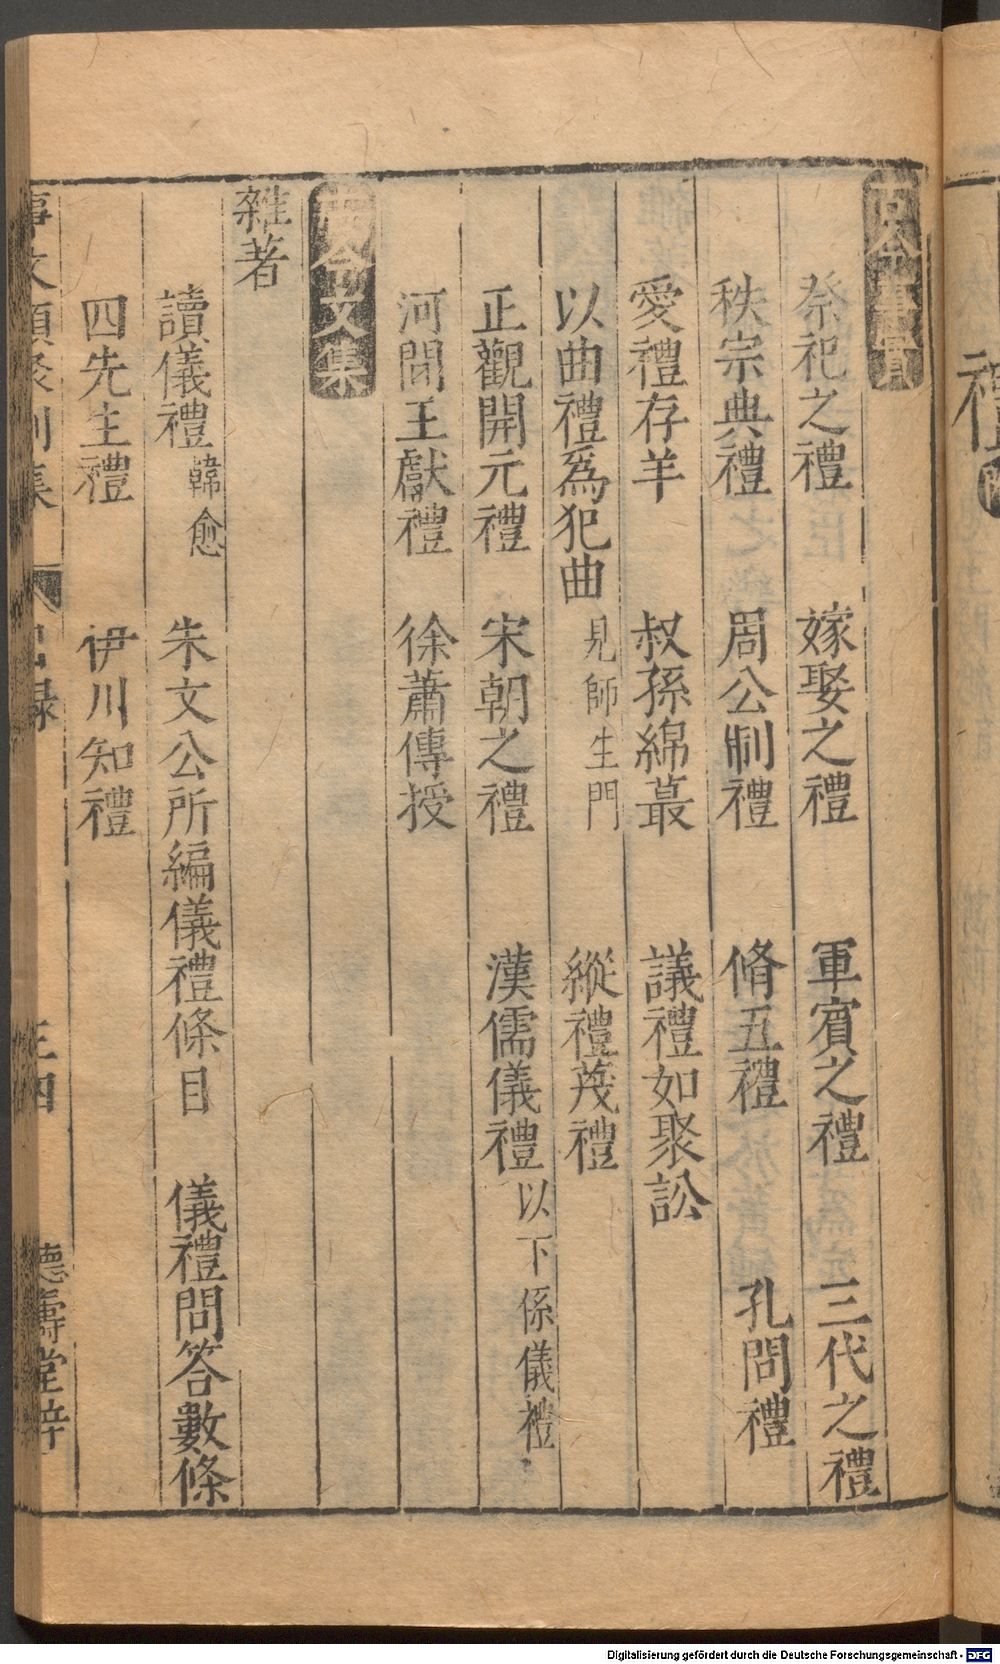 古今事實
祭祀之禮 嫁娶之禮 軍賓之禮 三代之禮
秩宗典禮 周公制禮 脩五禮 孔問禮
愛禮存羊 叔孫綿蕞 議禮如聚訟
以曲禮爲犯曲 見師生門 縱禮茂禮
正觀開元禮 宋朝之禮 漢儒儀禮 以下係儀禮
河間王獻禮 徐蕭傳授
古今文集
雜著
讀儀禮 韓愈 朱文公所編儀禮條目 儀禮問答數條
四先生禮 伊川知禮
事文類聚別集 目録 三四 德壽堂梓
禮
Digitalisierung gefördert durch die Deutsche Forschungsgemeinschaft - DFG